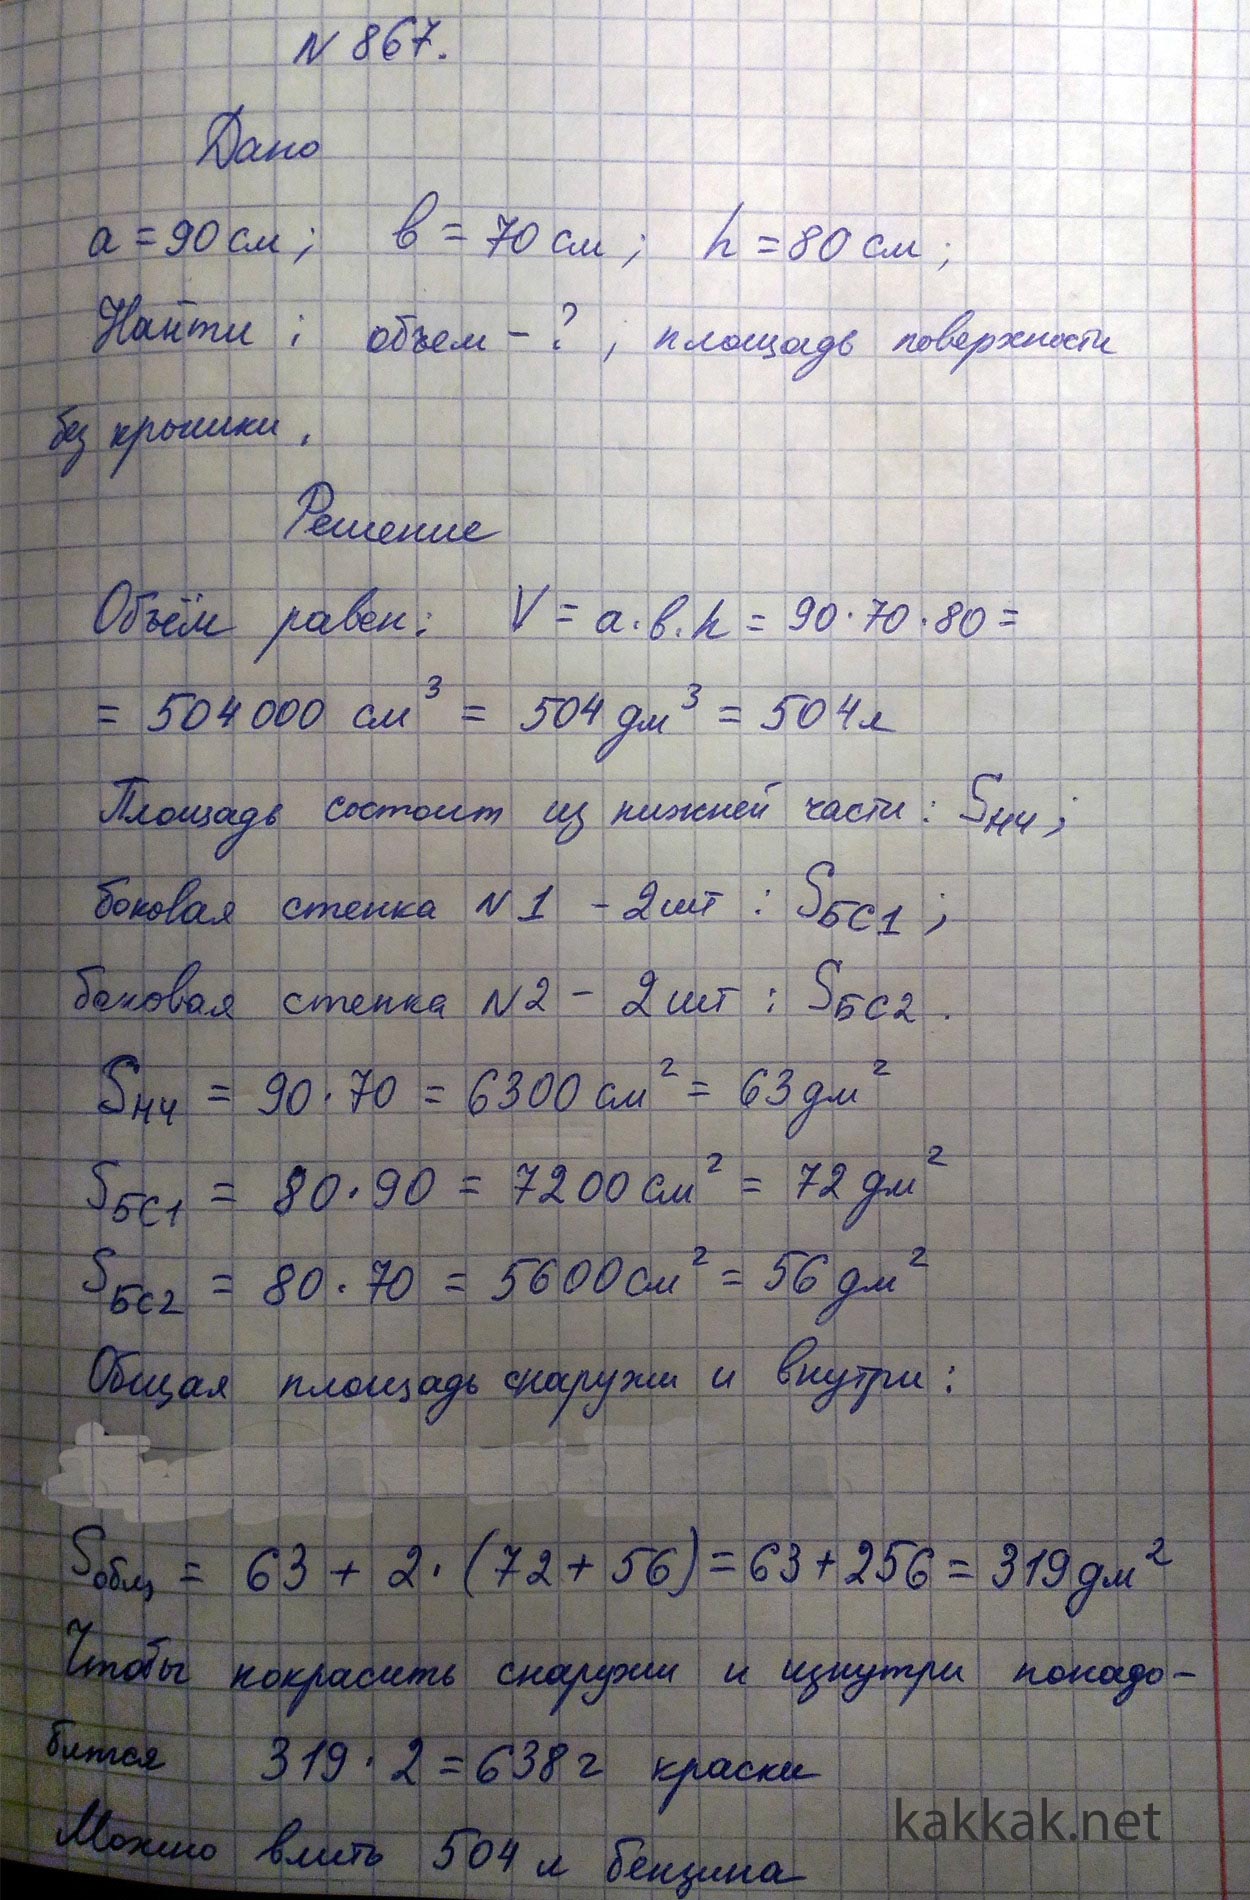 N 867.
Дано
a = 90 см; в = 70 см; h = 80 см;
Найти: объем - ?, площадь поверхности
без крышки.
Решение
Объём равен: V = a·в·h = 90·70·80 =
= 504000 см³ = 504 дм³ = 504 л
Площадь состоит из нижней части: Sнч;
боковая стенка N1 - 2 шт: Sбс1;
боковая стенка N2 - 2 шт: Sбс2.
Sнч = 90·70 = 6300 см² = 63 дм²
Sбс1 = 80·90 = 7200 см² = 72 дм²
Sбс2 = 80·70 = 5600 см² = 56 дм²
Общая площадь снаружи и внутри:
Sобщ = 63 + 2·(72 + 56) = 63 + 256 = 319 дм²
Чтобы покрасить снаружи и изнутри понадо-
бится 319·2 = 638 г краски
Можно влить 504 л бензина
kakkak.net